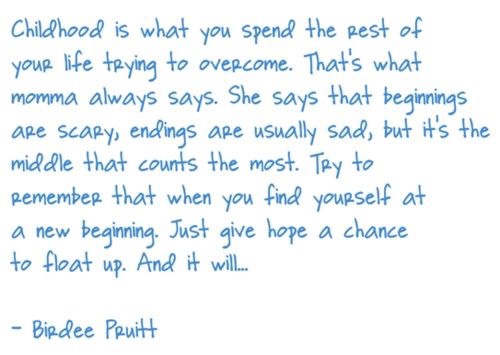 Childhood is what you spend the rest of
your life trying to overcome. That's what
momma always says. She says that beginnings
are scary, endings are usually sad, but it's the
middle that counts the most. Try to
remember that when you find yourself at
a new beginning. Just give hope a chance
to float up. And it will...
- Birdee Pruitt